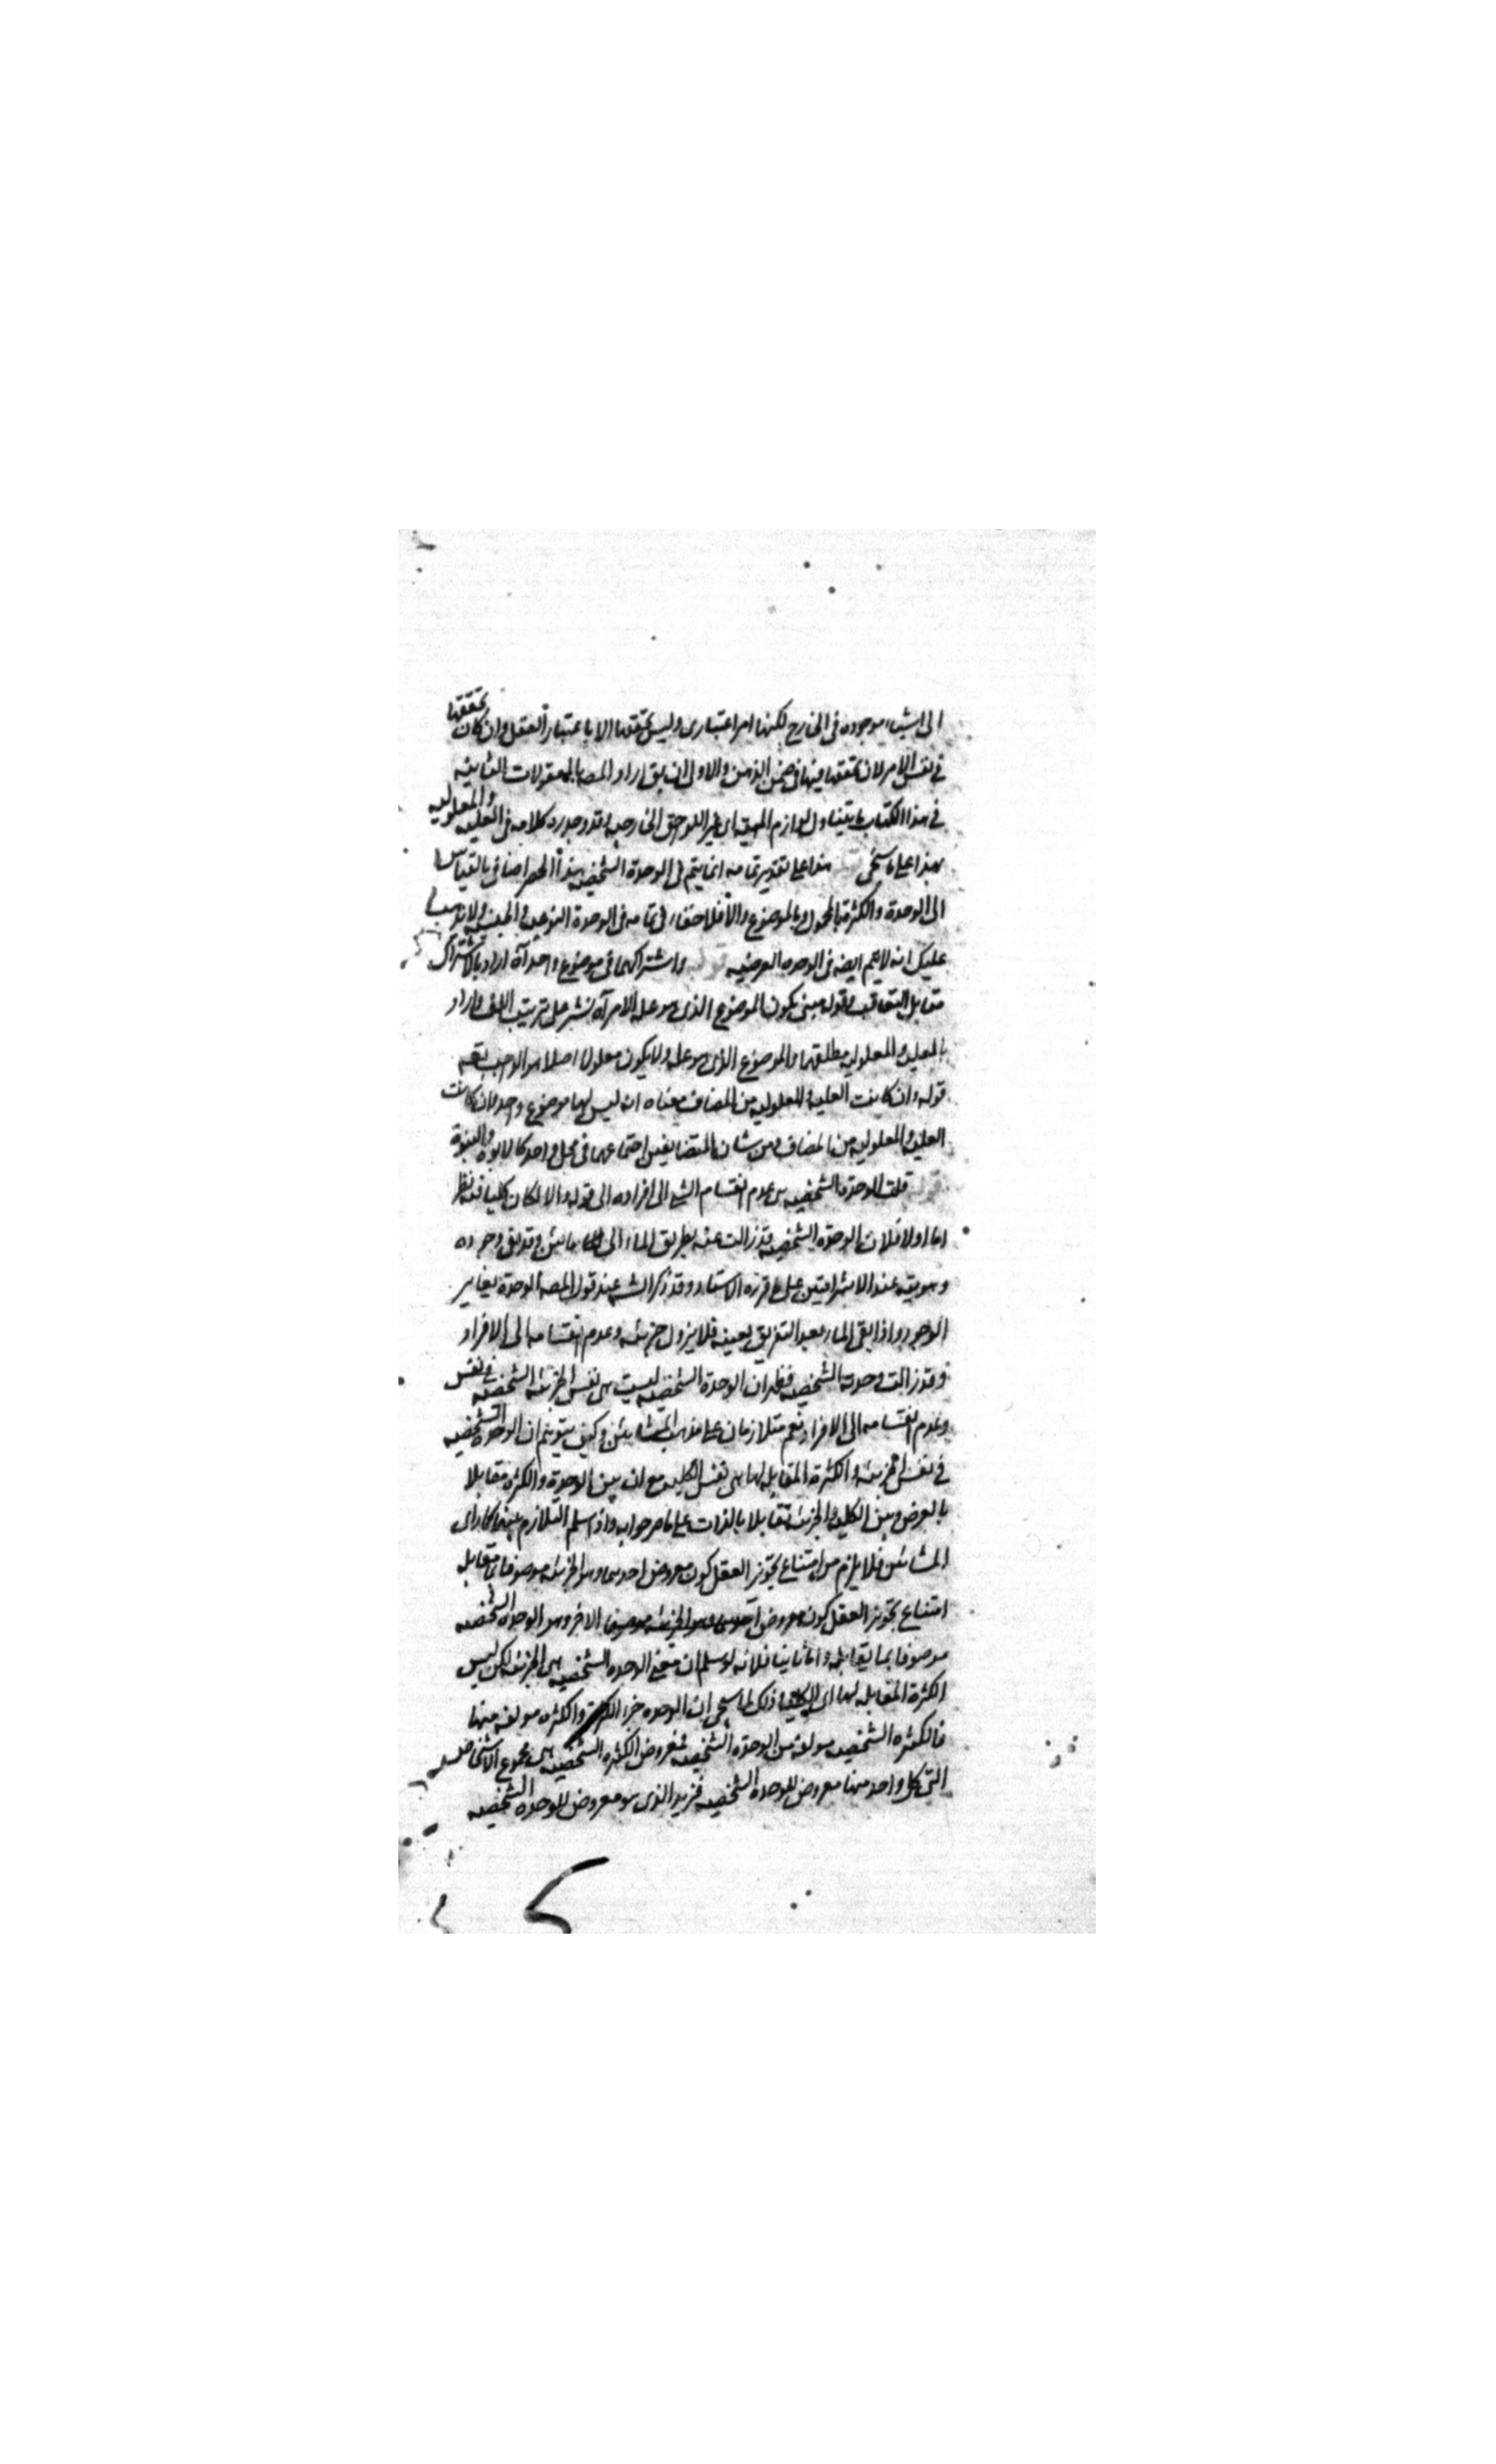 الى اشياء موجودة فى الخارج لكنها امر اعتبارى وليس تحققها الا باعتبار العقل وان كان تحققها
فى نفس الامر لان تحققها فيها فى ضمن الذهن والاولى ان يق اراد المصه بالمعقولات الثانيه
فى هذا الكتاب ما يتناول لوازم المهية اى غير اللواحق الخارجيه وقد وجد رد كلامه فى العليه والمعلوليه
بهذا على ما سيجئ هذا على تقدير تمامه انما يتم فى الوحدة الشخصيه هذا الحصر اضافى بالقياس
الى الوحدة والكثرة بالمحمول وبالموضوع والا فلا خفاء فى تمامه فى الوحدة النوعيه والجنسيه ولا يذهب
عليك انه لا يتم ايضه فى الوحده العرضيه واشتراكهما فى موضوع واحد آه اراد بالاشتراك
مقابل التعاقب فقوله يكون الموضوع الذى هو علة لامر آه نشر على ترتيب اللف واراد
بالعليه والمعلوليه مطلقهما والموضوع الذى هو عله ولا يكون معلولا اصلا هو الواجب تعه
قوله وان كانت العليه والمعلوليه من المضاف معناه انه ليس لهما موضوع واحد وان كانت
العليه والمعلوليه من المضاف ومن شان المتضايفين اجتماعهما فى محل واحد كالابوة والبنوة
قلت الوحدة الشخصيه هى عدم انقسام الشئ الى افراده الى قوله والا لكان كليا فيه نظر
اما اولا فلان الوحدة الشخصيه قد زالت عنه بطريق الماء الى مائين وقد بقى وجوده
وهويته عند الاشراقيين على ما قرره الاستاد وقد ذكر الشه عند قول المصه الوحدة تغاير
الوجود واذا بقى الماء بعد التفريق بعينه فلا يزول جزئيته وعدم انقسامه الى الافراد
وقد زالت وحدته الشخصيه فظهر ان الوحدة الشخصيه ليست هى نفس الجزئيه الشخصيه فى نفس
وعدم انقسامه الى الافراد نعم متلازمان على مذهب المشائين وكيف يتوهم ان الوحدة الشخصيه
فى نفس الجزئيه والكثرة المقابله لها هى نفس الكليه مع ان بين الوحدة والكثرة تقابلا
بالعرض وبين الكليه والجزئيه تقابلا بالذات على ما صرحوا به واذا سلم التلازم بينهما كما راى
المشائين فلا يلزم من امتناع تجويز العقل كون معروض احدهما وهو الجزئيه موصوفا بمقابله
امتناع تجويز العقل كون معروض الاخر وهو الوحدة الشخصيه
موصوفا بما يقابله واما ثانيا فلانه لو سلم ان معنى الوحده الشخصيه هى الجزئيه لكن ليس
الكثرة المقابله لها اى الكليه ذلك لما سيجئ ان الوحده جزء الكثرة والكثره مولفه منها
فالكثره الشخصيه مولفه من الوحده الشخصيه فمعروض الكثره الشخصيه هى مجموع الاشخاص
التى كل واحد منها معروض للوحده الشخصيه فزيد الذى هو معروض للوحده الشخصيه